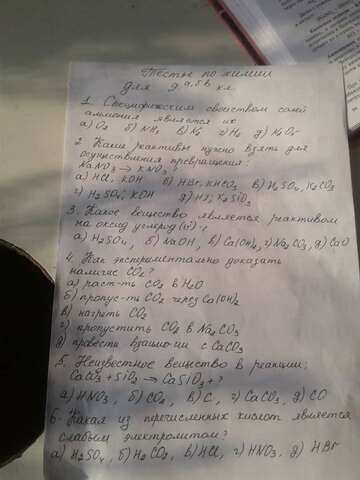 Тесты по химии
для 9 а,б,в кл.
1. Специфическим свойством солей
аммония является их
а) O₂ б) NH₃ в) N₂ г) H₂ д) N₂O₅
2. Какие реактивы нужно взять для
осуществления превращения:
NaNO₃ → KNO₃?
а) HCl, KOH б) HBr, KHCO₃ в) H₂SO₄, K₂CO₃
г) H₂SO₄, KOH д) HI, K₂SiO₃
3. Какое вещество является реактивом
на оксид углерода (IV)
а) H₂SO₄, б) NaOH, в) Ca(OH)₂, г) Na₂CO₃, д) CaO
4. Как экспериментально доказать
наличие CO₂?
а) раст-ть CO₂ в H₂O
б) пропус-ть CO₂ через Ca(OH)₂
в) нагреть CO₂
г) пропустить CO₂ в Na₂CO₃
д) провести взаимо-ии с CaCO₃
5. Неизвестное вещество в реакции:
CaCO₃ + SiO₂ → CaSiO₃ + ?
а) HNO₃, б) CO₂, в) C, г) CaCO₃, д) CO
6. Какая из перечисленных кислот является
слабым электролитом?
а) H₂SO₄, б) H₂CO₃, в) HCl, г) HNO₃, д) HBr